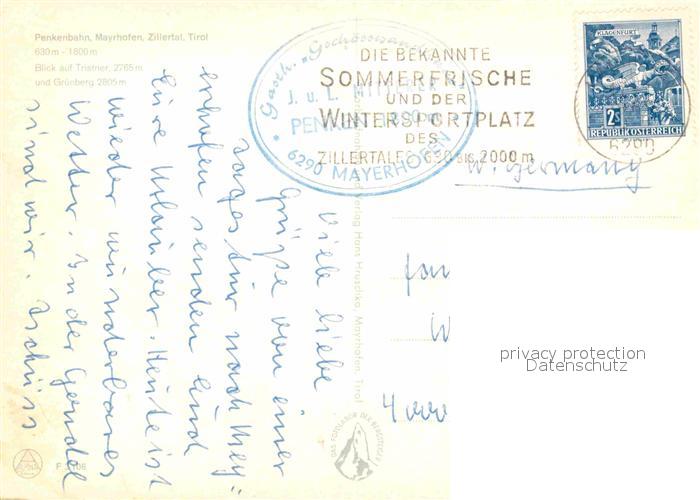 Penkenbahn, Mayrhofen, Zillertal, Tirol
630 m - 1800 m
Blick auf Tristner, 2765 m
und Grünberg 2805 m
Viele liebe
Grüße von einer
Tagestour nach Mey"
erhofen senden Euch
Eure Urlauber. Heute ist
wieder wunderbares
Wetter. In der Gondel
sind wir. Tschüss
DIE BEKANNTE
SOMMERFRISCHE
UND DER
WINTERSPORTPLATZ
DES
ZILLERTALES 630 BIS 2000 m
Gasth. „Gschösswand"
J. u. L.
PENKEN
6290 MAYERHOFEN
KLAGENFURT
2S
REPUBLIK ÖSTERREICH
6290
W. Germany
Fam
W
4000
Verlag Hans Hruschka, Mayrhofen, Tirol
DAS EDELHAUS DER BERGSTEIGER
privacy protection
Datenschutz